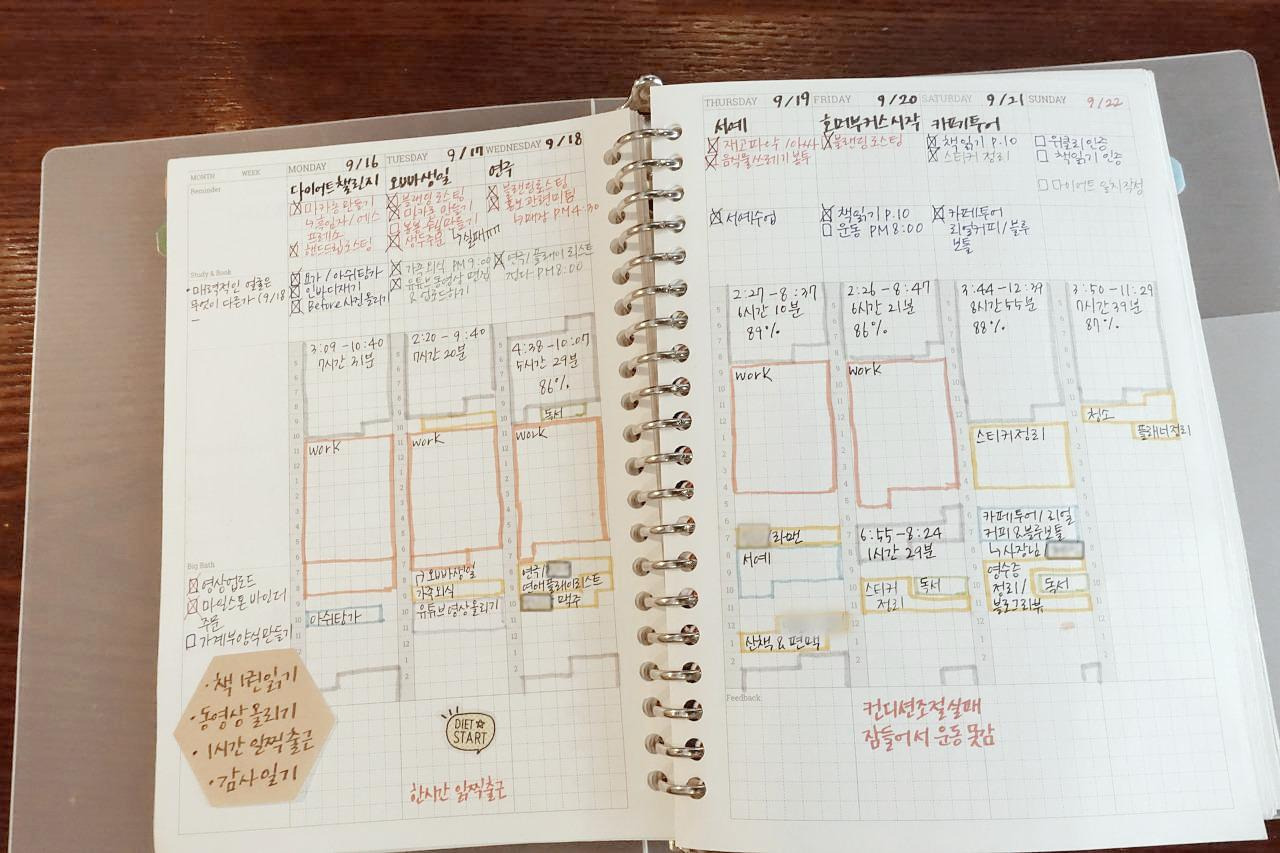 MONTH WEEK
MONDAY 9/16
TUESDAY 9/17
WEDNESDAY 9/18
Reminder
다이어트챌린지
오빠생일
연주
마카롱만들기
↳흑임자/에스
프레소
핸드드립로스팅
블랜딩로스팅
마카롱 만들기
생두주문 ↳실패ㅠㅠ
블랜딩로스팅
홍보관련미팅
↳매장 PM 4:30
Study & Book
•매력적인 얼굴은
무엇이 다른가 (9/18
–
요가/아쉬탕가
인바디재기
Before사진올리기
가족외식 PM 9:00
유튜브동영상 편집
& 업로드하기
연주/플레이리스트
PM 8:00
3:09-10:40
7시간 31분
2:20-9:40
7시간 20분
4:38-10:07
5시간 29분
86%
독서
work
work
work
Big Bath
영상업로드
마일스톤 바인더
주문
가계부양식만들기
아쉬탕가
오빠생일
가족외식
유튜브영상올리기
연주/
연애플레이리스트
맥주
•책 1권읽기
•동영상 올리기
•1시간 일찍출근
•감사일기
DIET
START
한시간 일찍출근
THURSDAY 9/19
FRIDAY 9/20
SATURDAY 9/21
SUNDAY 9/22
서예
호머부커스시작
카페투어
재고파악/아빠
음식물쓰레기봉투
블랜딩로스팅
책읽기 P.10
스티커정리
위클리인증
책읽기 인증
서예수업
책읽기 P.10
운동 PM8:00
카페투어
리얼커피/블루
보틀
2:27-8:37
6시간 10분
89%
2:26-8:47
6시간 21분
86%
3:44-12:39
8시간55분
88%
3:50-11:29
7시간39분
87%
work
work
청소
플래너정리
스티커정리
라멘
서예
6:55-8:24
1시간 29분
카페투어/리얼
커피&블루보틀
↳사장님
스티커
정리
독서
영수증
정리/
블로그리뷰
독서
산책&편맥
Feedback
컨디션조절실패
잠들어서 운동못감